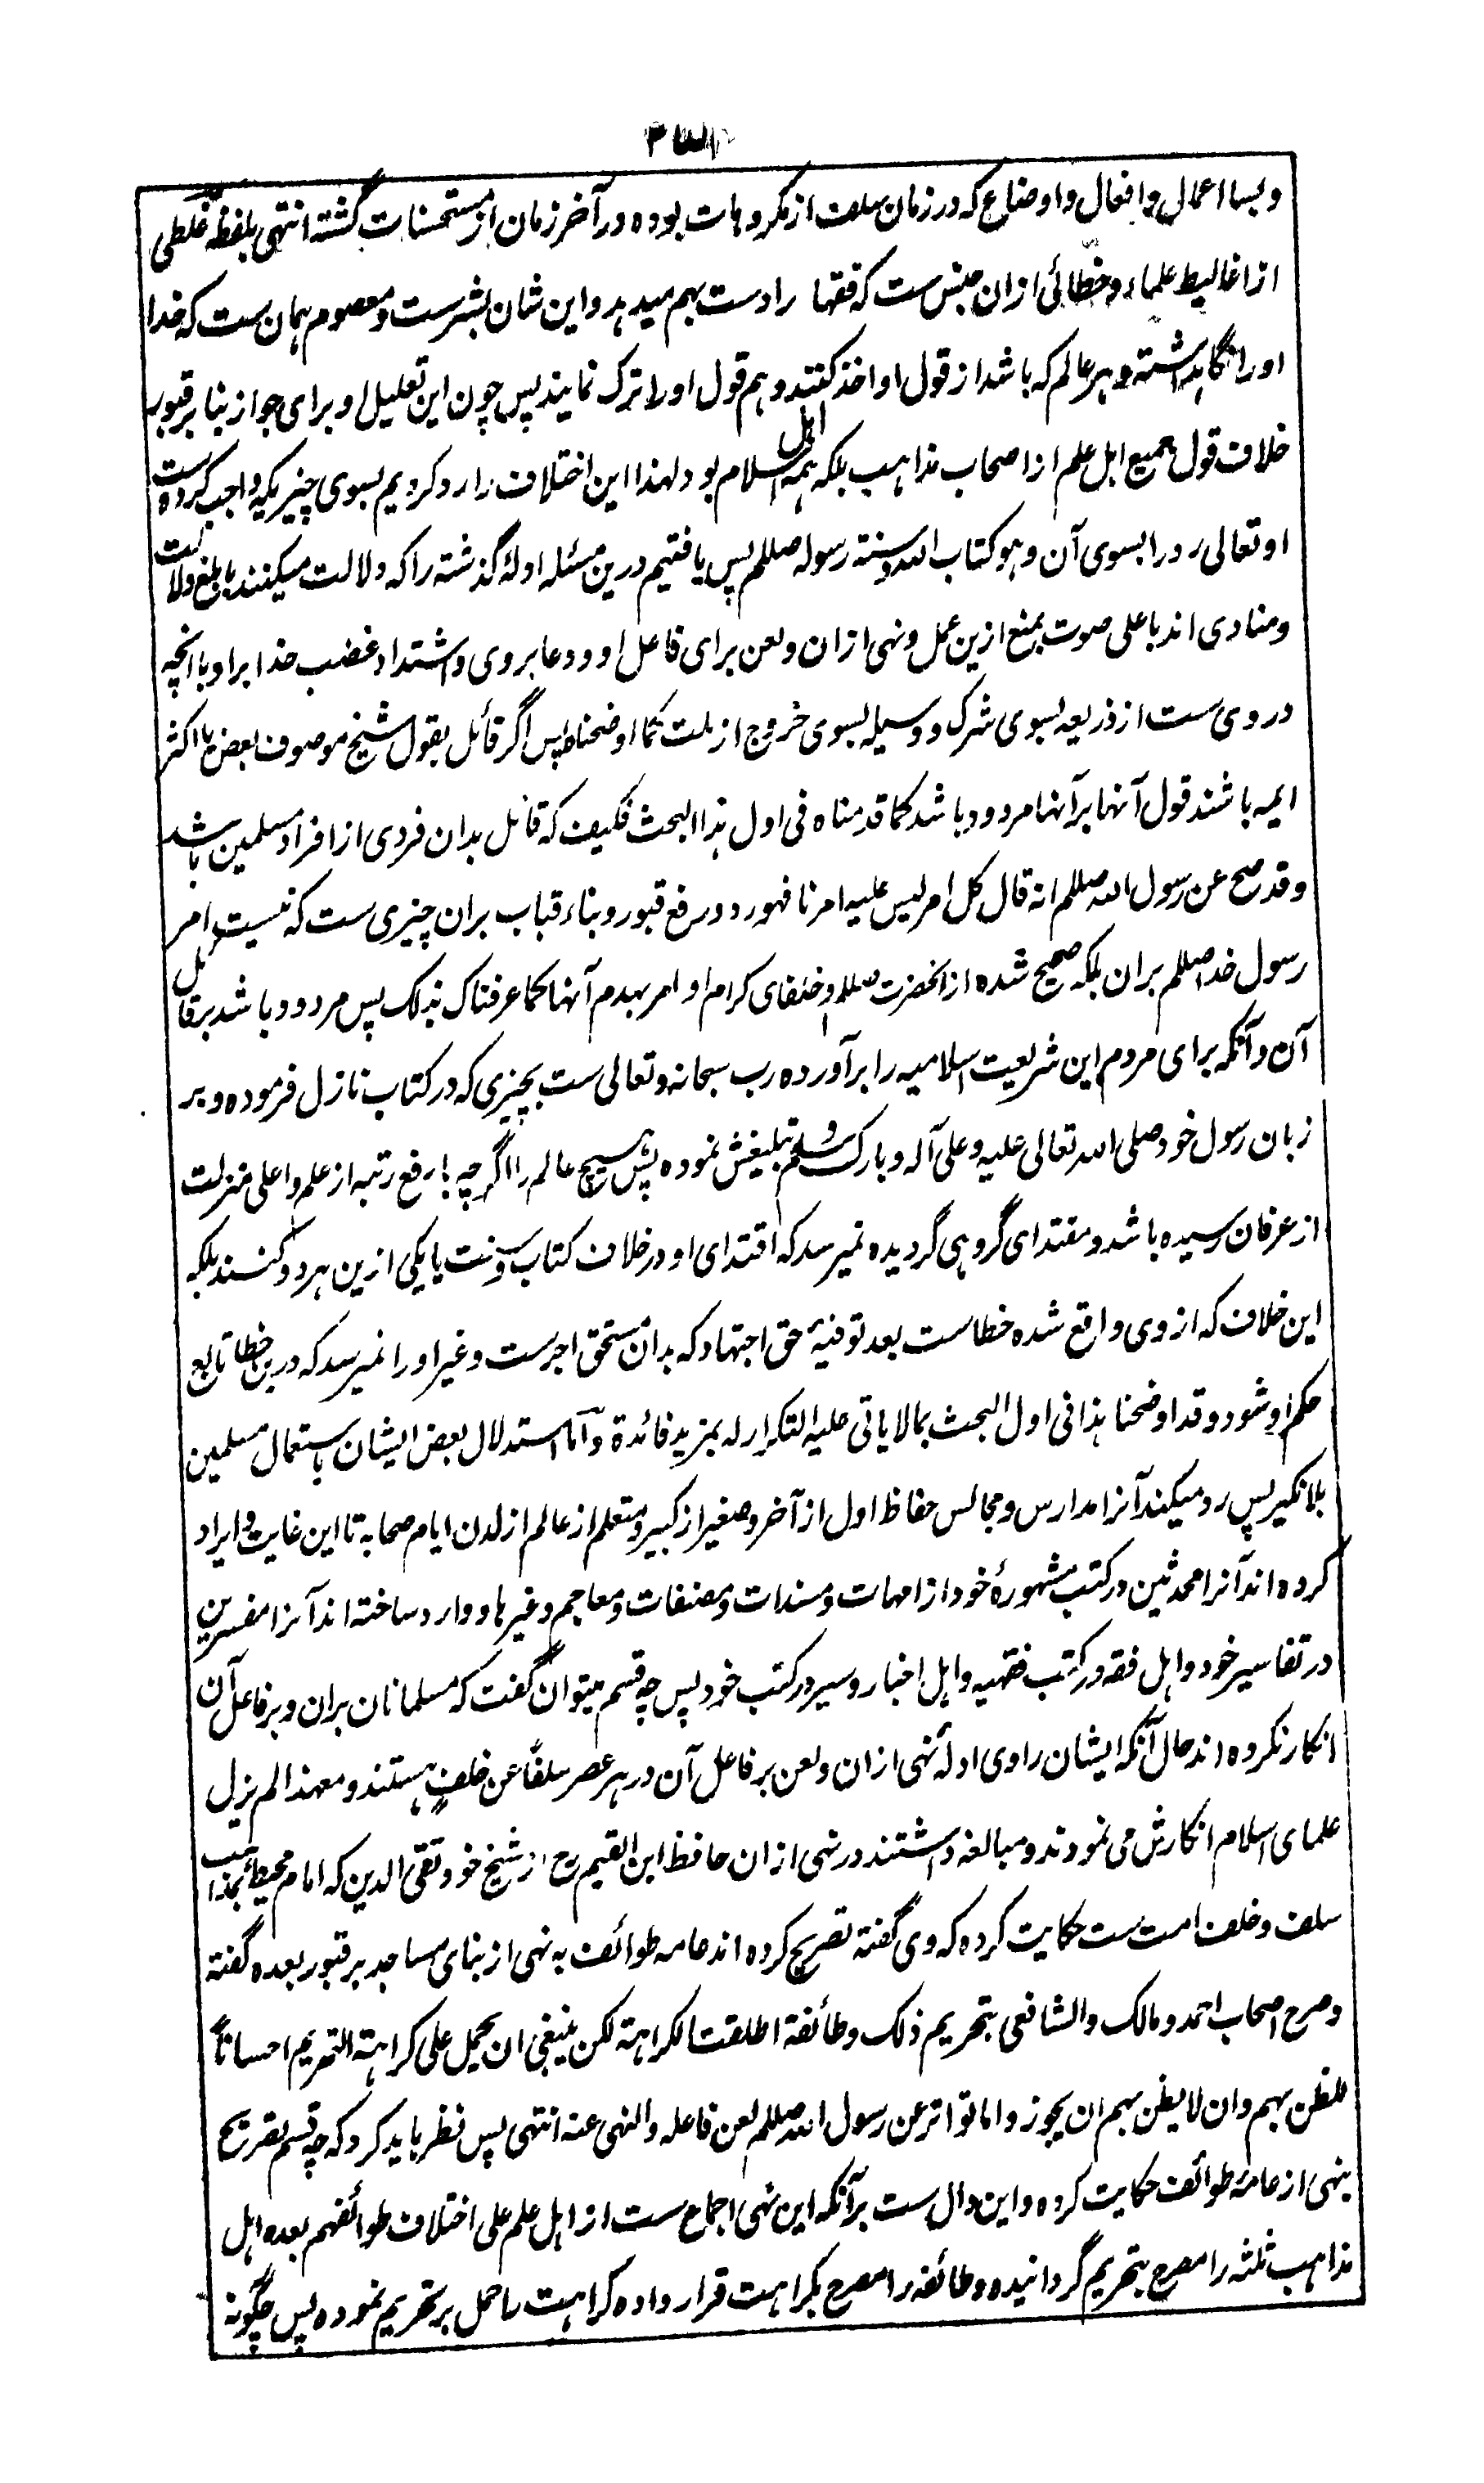 وبسا اعمال و افعال و اوضاع که در زمان سلف از مکروهات بوده در آخر زمان از مستحسنات گشته انتهی بلفظه غلطی
از اغالیط علماء و خطائی ازان جنس ست که فقها را دست بهم میدهد و این شان بشرست و معصوم همان ست که خدا
او را نگاهداشته و هر عالم که باشد از قول او اخذ کنند و هم قول او را ترک نمایند پس چون این تعلیل او برای جواز بنا بر قبور
خلاف قول جمیع اهل علم از اصحاب مذاهب بلکه همه اهل اسلام بود لهذا این اختلاف را رد کردیم بسوی چیزیکه واجب کرده ست
او تعالی رد را بسوی آن و هو کتاب الله و سنته رسوله صللم پس یافتیم درین مسئله ادلۀ گذشته را که دلالت میکنند بابلغ دلالت
و منادی اند باعلی صوت بمنع ازین عمل و نهی ازان و لعن برای فاعل او و دعا بروی و اشتداد غضب خدا براو با انچه
در وی ست از ذریعه بسوی شرک و وسیله بسوی خروج از ملت کما اوضحناه پس اگر قائل بقول شیخ موصوف بعض یا اکثر
ایمه باشند قول آنها بر آنها مردود باشد کما قدمناه فی اول هذا البحث فکیف که قائل بدان فردی از افراد مسلمین باشد
و قد صح عن رسول الله صللم انه قال کل امر لیس علیه امرنا فهو رد و رفع قبور و بناء قباب بران چیزی ست که نیست امر
رسول خدا صللم بران بلکه صحیح شده از آنحضرت صللم و خلفای کرام او امر بهدم آنها کما عرفناک بذلک پس مردود باشد بر قائل
آن و آنکه برای مردم این شریعت اسلامیه را برآورده رب سبحانه و تعالی ست بچیزی که در کتاب نازل فرموده و بر
زبان رسول خود صلی الله تعالی علیه و علی آله و بارک و سلم تبلیغش نموده پس هیچ عالم را اگرچه بارفع رتبه از علم و اعلی منزلت
از عرفان رسیده باشد و مقتدای گروهی گردیده نمیرسد که اقتدای او در خلاف کتاب و سنت یا یکی ازین هر دو کنند بلکه
این خلاف که از وی واقع شده خطاست بعد توفیۀ حق اجتهاد که بدان مستحق اجرست و غیر او را نمیرسد که درین خطا تابع
حکم او شود و قد اوضحنا هذا فی اول البحث بما لا یاتی علیه التکرار له بمزید فائدة و اما استدلال بعض ایشان باستعمال مسلمین
بلا نکیر پس رد میکند آنرا مدارس و مجالس حفاظ اول از آخر و صغیر از کبیر و متعلم از عالم از لدن ایام صحابه تا این غایت و ایراد
کرده اند آنرا محدثین در کتب مشهورۀ خود از امهات و مسندات و مصنفات و معاجم و غیرها و وارد ساخته اند آنرا مفسرین
در تفاسیر خود و اهل فقه در کتب فقهیه و اهل اخبار و سیر در کتب خود پس چه قسم میتوان گفت که مسلمانان بران و بر فاعل آن
انکار نکرده اند حال آنکه ایشان راوی ادلۀ نهی ازان و لعن بر فاعل آن در هر عصر سلفاً عن خلفٍ هستند و معهذا لم یزل
علمای اسلام انکارش می نمودند و مبالغه داشتند در نهی ازان حافظ ابن القیم رح از شیخ خود تقی الدین که امام محیط بمذاهب
سلف و خلف امت ست حکایت کرده که وی گفته تصریح کرده اند عامه طوائف به نهی از بنای مساجد بر قبور بعده گفته
و صرح اصحاب احمد و مالک و الشافعی بتحریم ذلک و طائفة اطلقت الکراهة لکن ینبغی ان یحمل علی کراهة التحریم احساناً
للظن بهم و ان لا یظن بهم ان یجوزوا ما تواتر عن رسول الله صللم لعن فاعله و النهی عنه انتهی پس نظر باید کرد که چه قسم تصریح
بنهی از عامۀ طوائف حکایت کرده و این دال ست بر آنکه این نهی اجماع ست از اهل علم علی اختلاف طوائفهم بعده اهل
مذاهب ثلثه را مصرح بتحریم گردانیده و طائفه را مصرح بکراهت قرار داده کراهت را حمل بر تحریم نموده پس چگونه